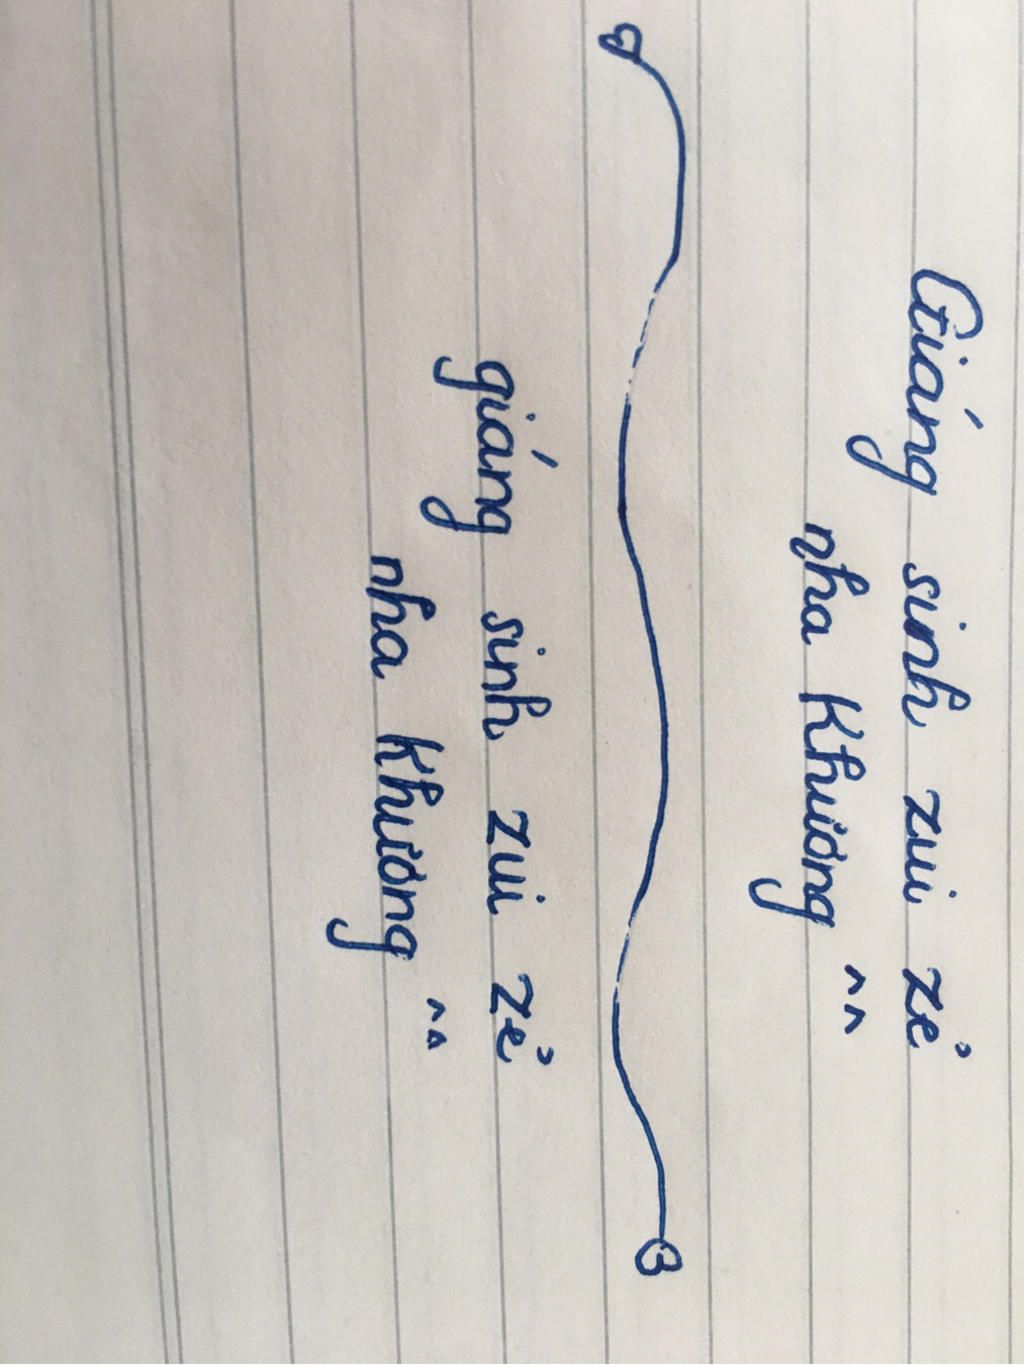 Giáng sinh zui zẻ
nha Khương ^^
giáng sinh zui zẻ
nha Khương ^^